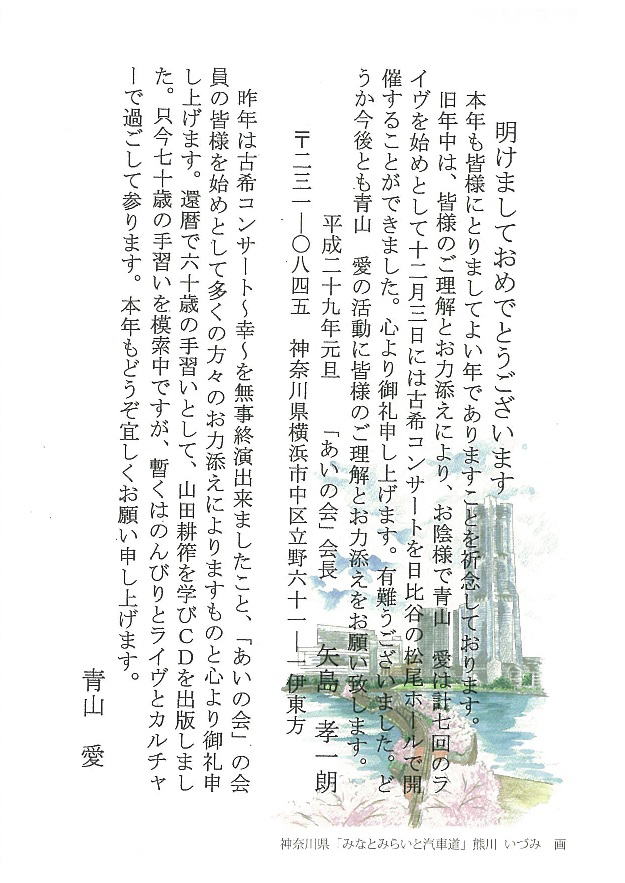 明けましておめでとうございます
本年も皆様にとりましてよい年でありますことを祈念しております。
旧年中は、皆様のご理解とお力添えにより、お陰様で青山　愛は計七回のラ
イヴを始めとして十二月三日には古希コンサートを日比谷の松尾ホールで開
催することができました。心より御礼申し上げます。有難うございました。ど
うか今後とも青山　愛の活動に皆様のご理解とお力添えをお願い致します。
平成二十九年元旦　　「あいの会」会長　　矢島　孝一朗
〒二三一―〇八四五　神奈川県横浜市中区立野六十一―一伊東方
昨年は古希コンサート～幸～を無事終演出来ましたこと、「あいの会」の会
員の皆様を始めとして多くの方々のお力添えによりますものと心より御礼申
し上げます。還暦で六十歳の手習いとして、山田耕筰を学びＣＤを出版しまし
た。只今七十歳の手習いを模索中ですが、暫くはのんびりとライヴとカルチャ
ーで過ごして参ります。本年もどうぞ宜しくお願い申し上げます。
青山　愛
神奈川県「みなとみらいと汽車道」熊川 いづみ　画